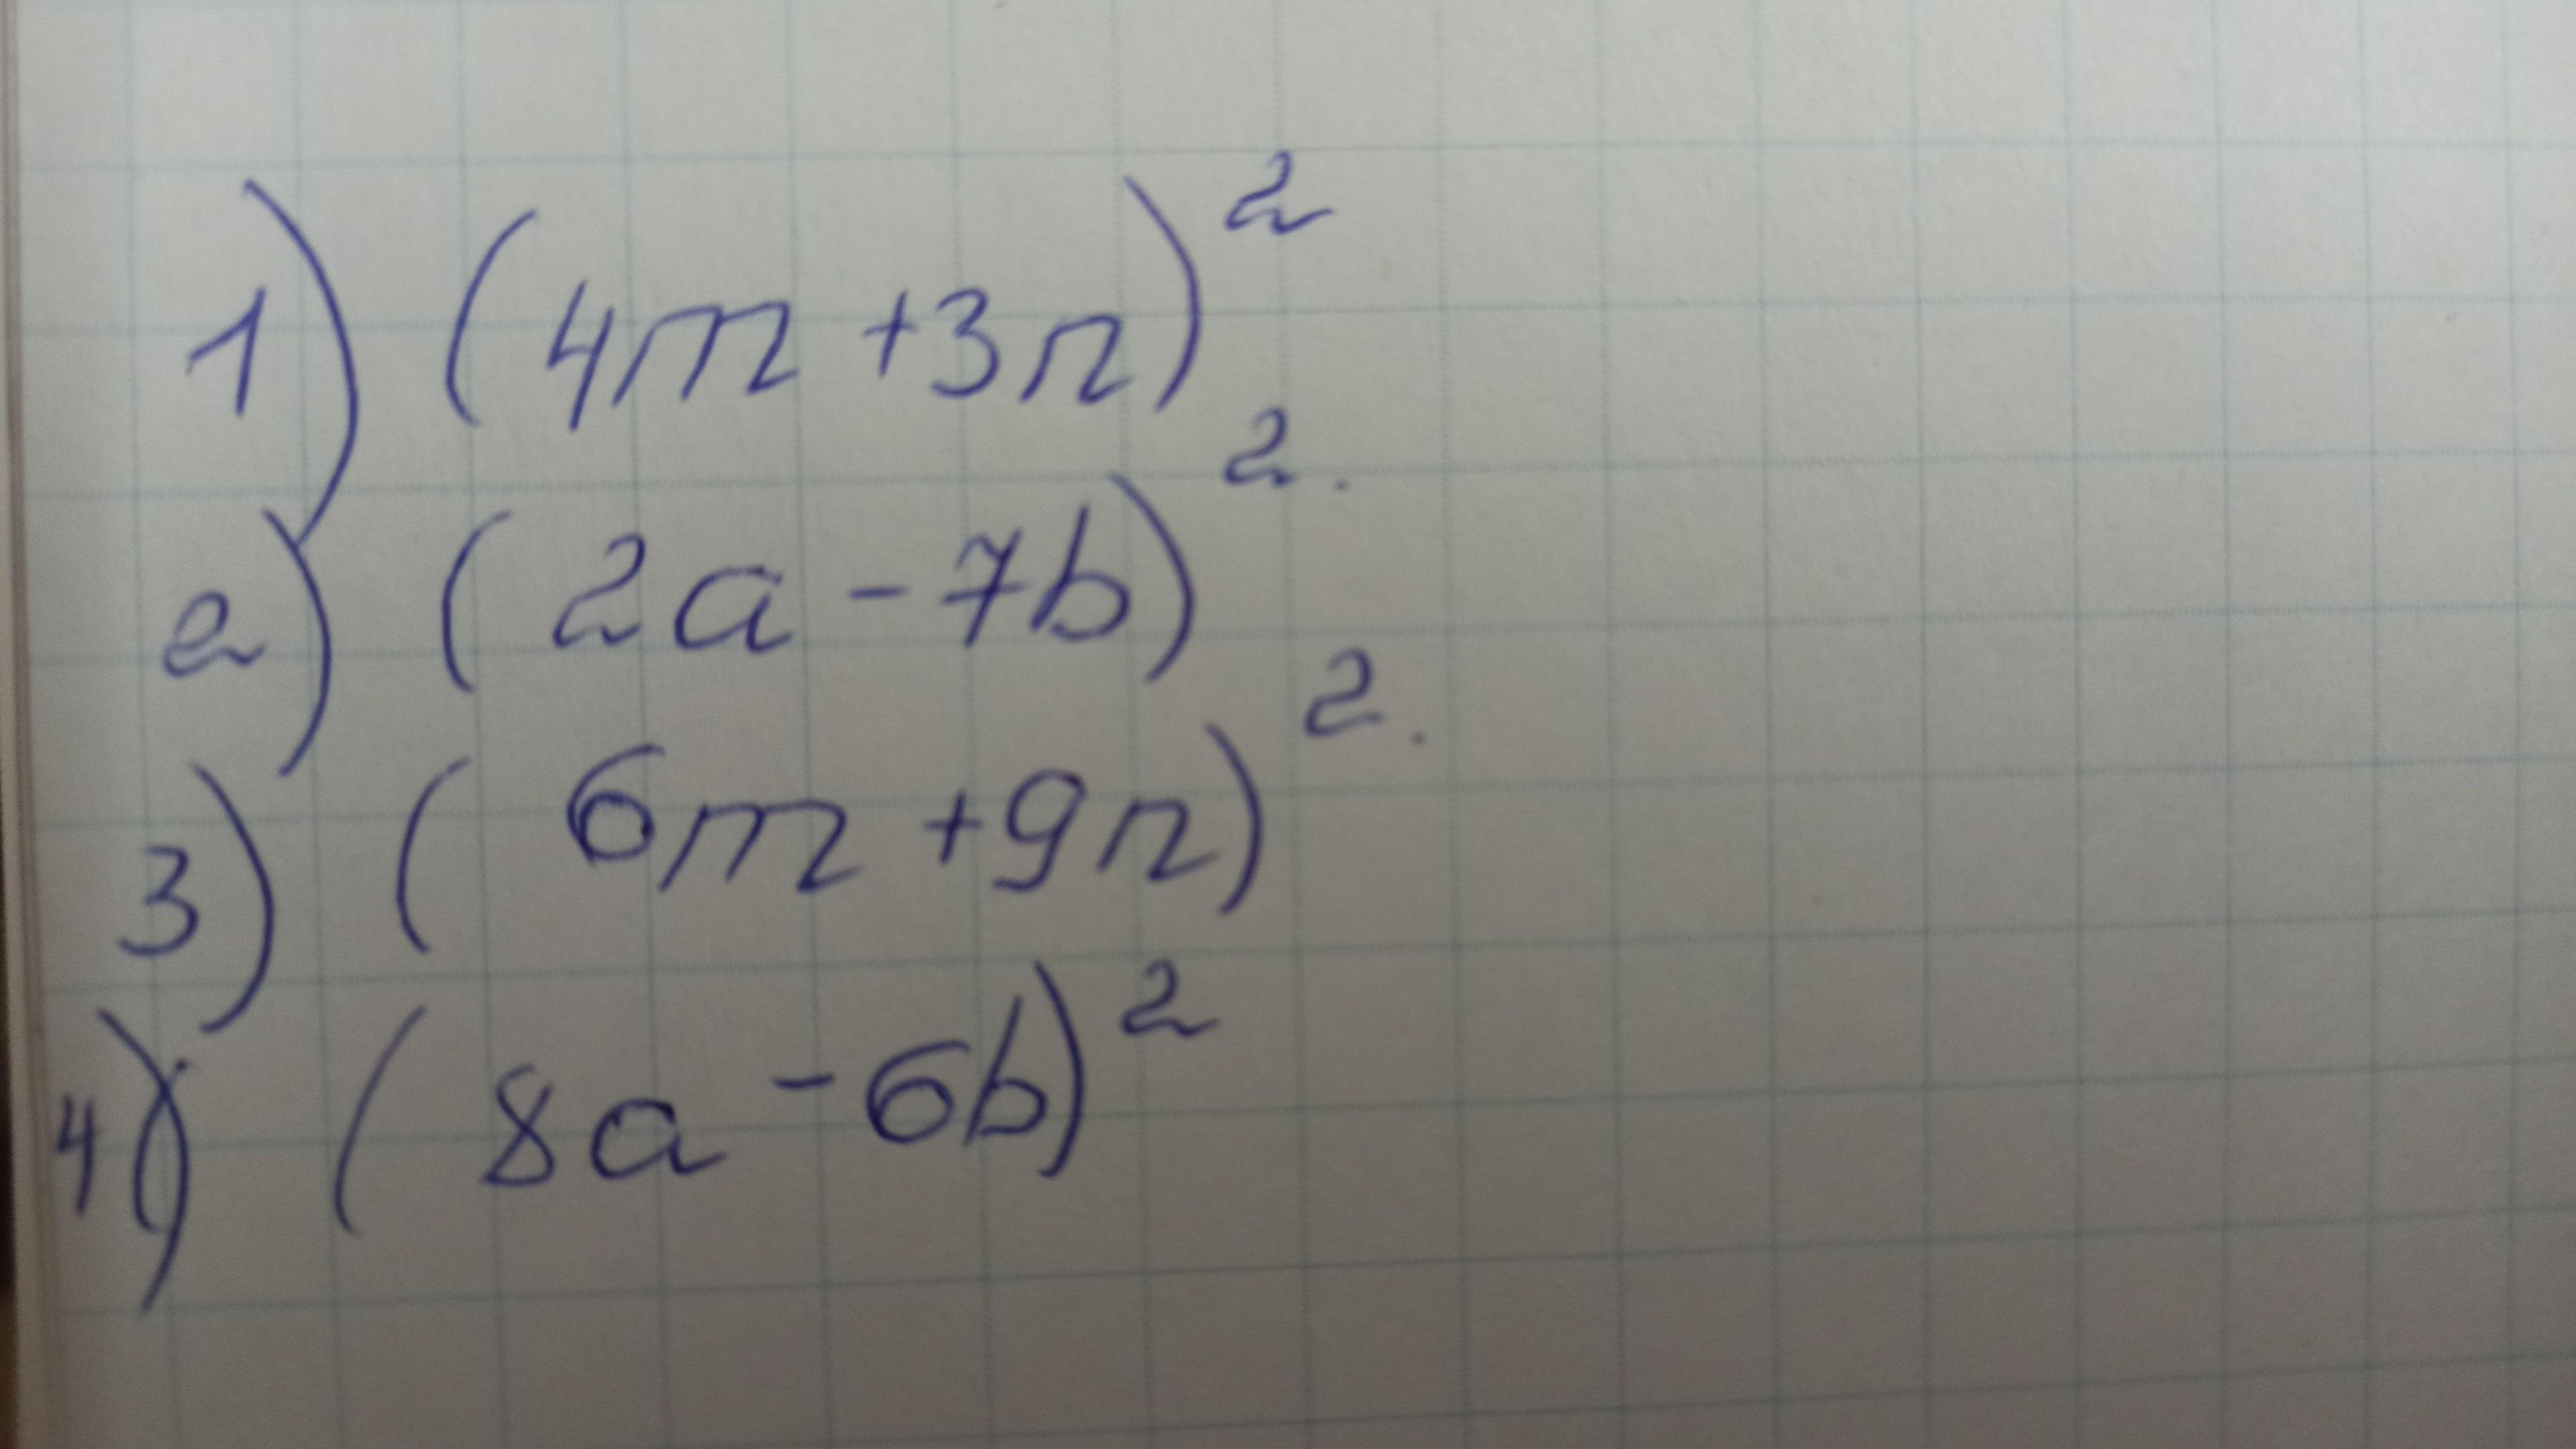 1) (4m+3n)²
2) (2a-7b)².
3) (6m+9n)².
4) (8a-6b)²